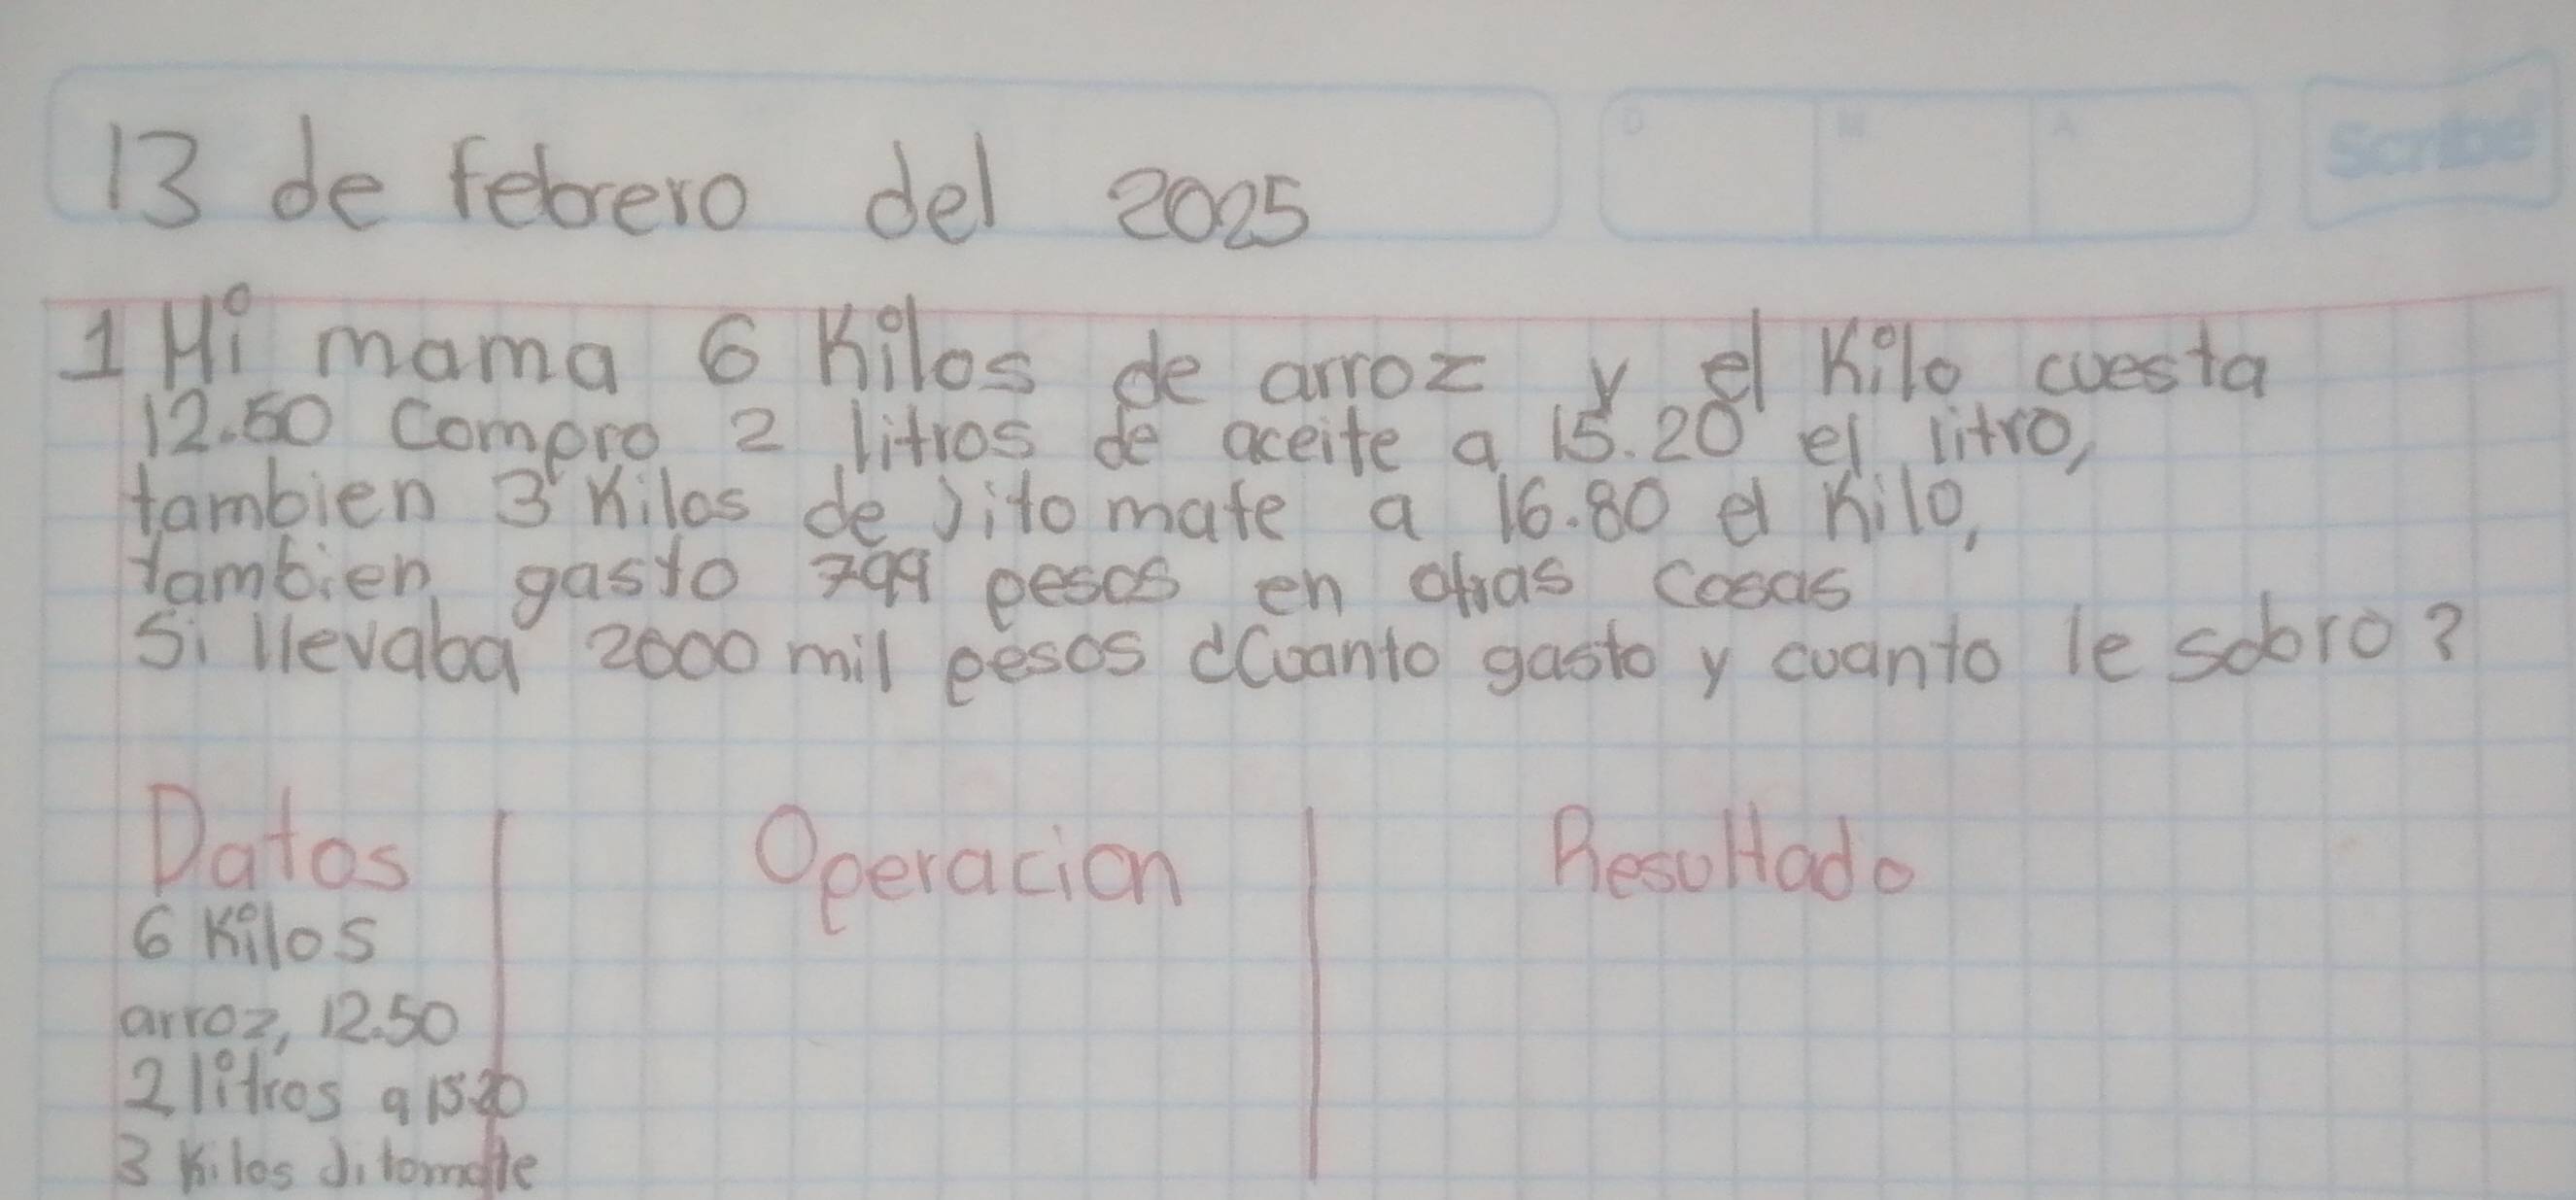 13 de febrero del 2025
Scribe
1 Mi mama 6 Kilos de arroz y el Kilo cuesta
12.50 Compro 2 litros de aceite a 15.20 el litro,
tambien 3 Kilos de Jitomate a 16.80 el Kilo,
tambien gasto 799 pesos en otras Cosas
Si llevaba 2000 mil pesos ¿Cuanto gasto y cuanto le sobro?
Datos Operacion Resultado
6 Kilos
arroz, 12.50
2 litros a 15.20
3 Kilos Jitomate